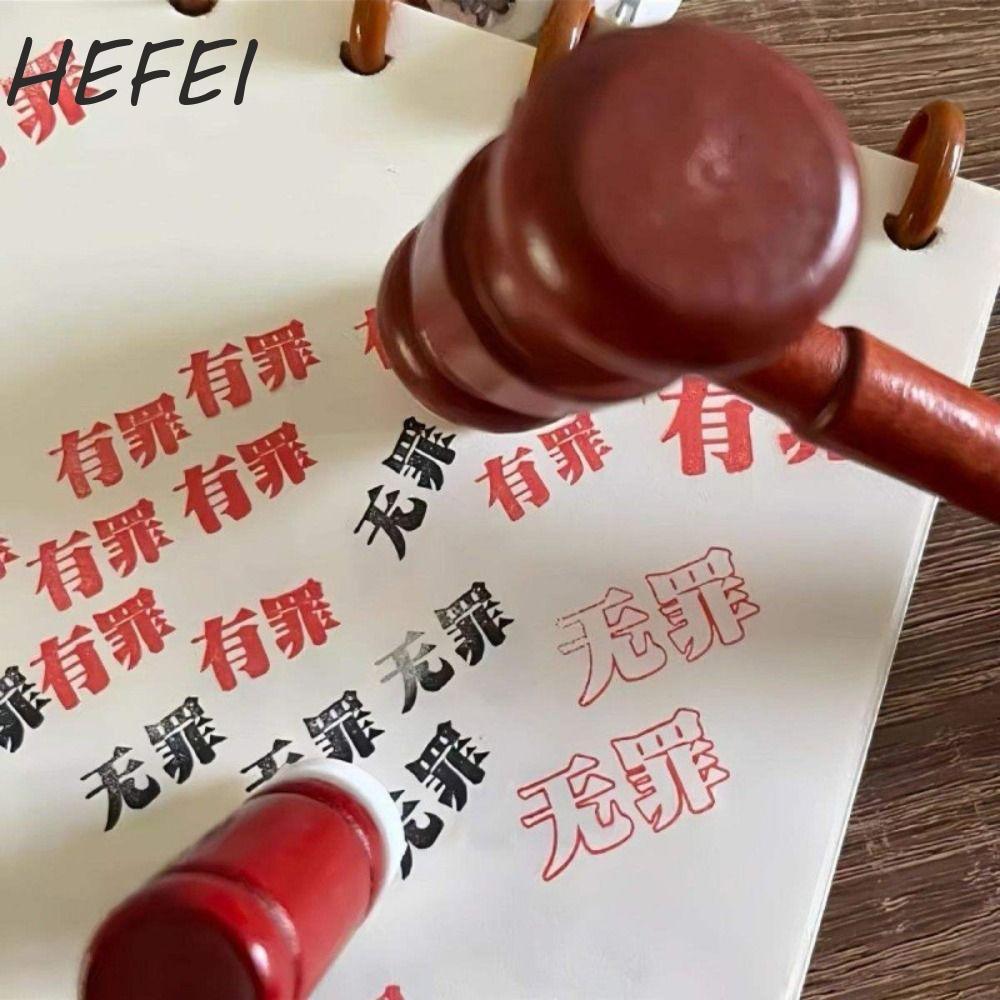 HEFEI
罪
有罪
有罪
有罪
有罪
无罪
有罪
有
有罪
有罪
有罪
无罪
无罪
罪
无罪
无罪
无罪
无罪